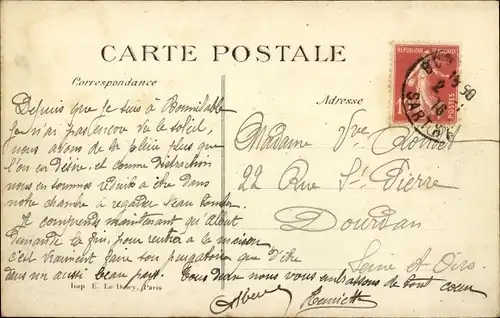 CARTE POSTALE
Correspondance
Adresse
REPUBLIQUE FRANÇAISE
POSTES
Depuis que je suis à Bonnétable
je n'ai pas encore vu le soleil,
nous avons de la pluie plus que
l'on en désire, et comme distraction
nous en sommes réduits à être dans
notre chambre à regarder l'eau tomber.
Je comprends maintenant qu'Albert
demande la fin, pour rentrer à la maison
c'est vraiment faire son purgatoire que d'être
dans un aussi beau pays. Tous deux nous vous embrassons de tout cœur
Albert Henriette
Madame Vve
22 Rue St Pierre
Dourdan
Seine et Oise
Imp. E. Le Deley, Paris